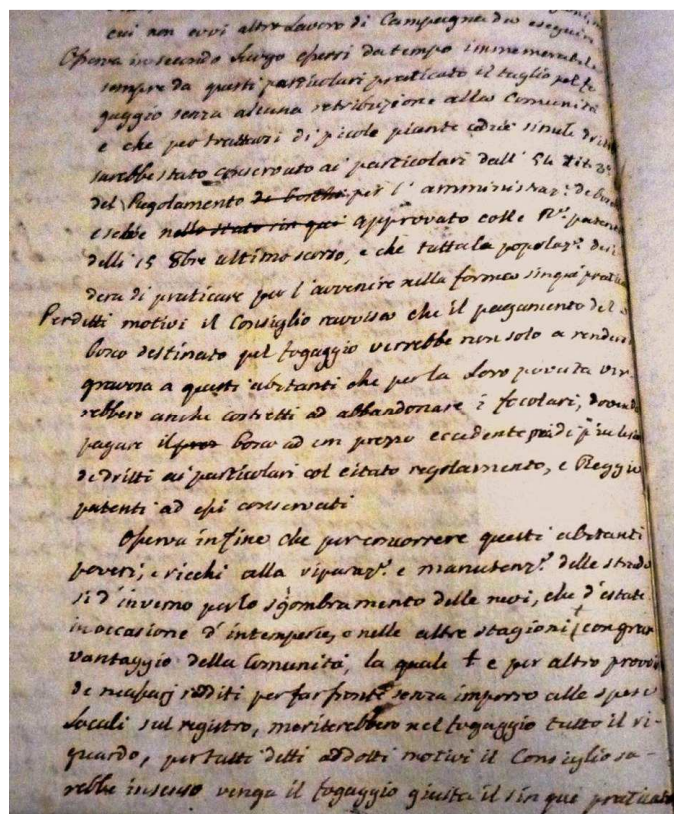 cui non evvi altro Lavoro di Campagna da eseguire
Osserva in secondo Luogo essersi da tempo immemorabile
sempre da questi particolari praticato il taglio pel fo
gaggio senza alcuna retribuzione alla Comunità
e che per trattarsi di picole piante cedue simile dritto
sarebbe stato conservato ai particolari dall' 54 tit. 3°
del Regolamento de boschi per l' amministraz.e de bos
e selve nello stato sin qui approvato colle R.e patenti
delli 15 8bre ultimo scorso, e che tutta la popolaz.e desi
dera di praticare per l'avvenire nella forma sinqui pratica
Perdetti motivi il Consiglio ravvisa che il pagamento del
bosco destinato pel fogaggio verrebbe non solo a rendersi
gravosa a questi abitanti che per la Loro povertà ver-
rebbero anche costretti ad abbandonare i focolari, dovendo
pagare il prez bosco ad un prezzo eccedente
de dritti ai particolari col citato regolamento, e Reggie
patenti ad essi conservati
Osserva in fine che per concorrere questi abitanti
poveri, e ricchi alla riparaz.e e manutenz.e delle strade
sì d'inverno per lo sgombramento delle nevi, che d'estate
in occasione d'intemperie, e nelle altre stagioni con gran
vantaggio della Comunità, la quale e per altro provvi
de redditi per far fronte senza imporre alle spese
Locali sul registro, meriterebbero nel fogaggio tutto il ri-
guardo, per tutti detti addotti motivi il Consiglio sa-
rebbe in senso venga il fogaggio giusta il sin qui praticato